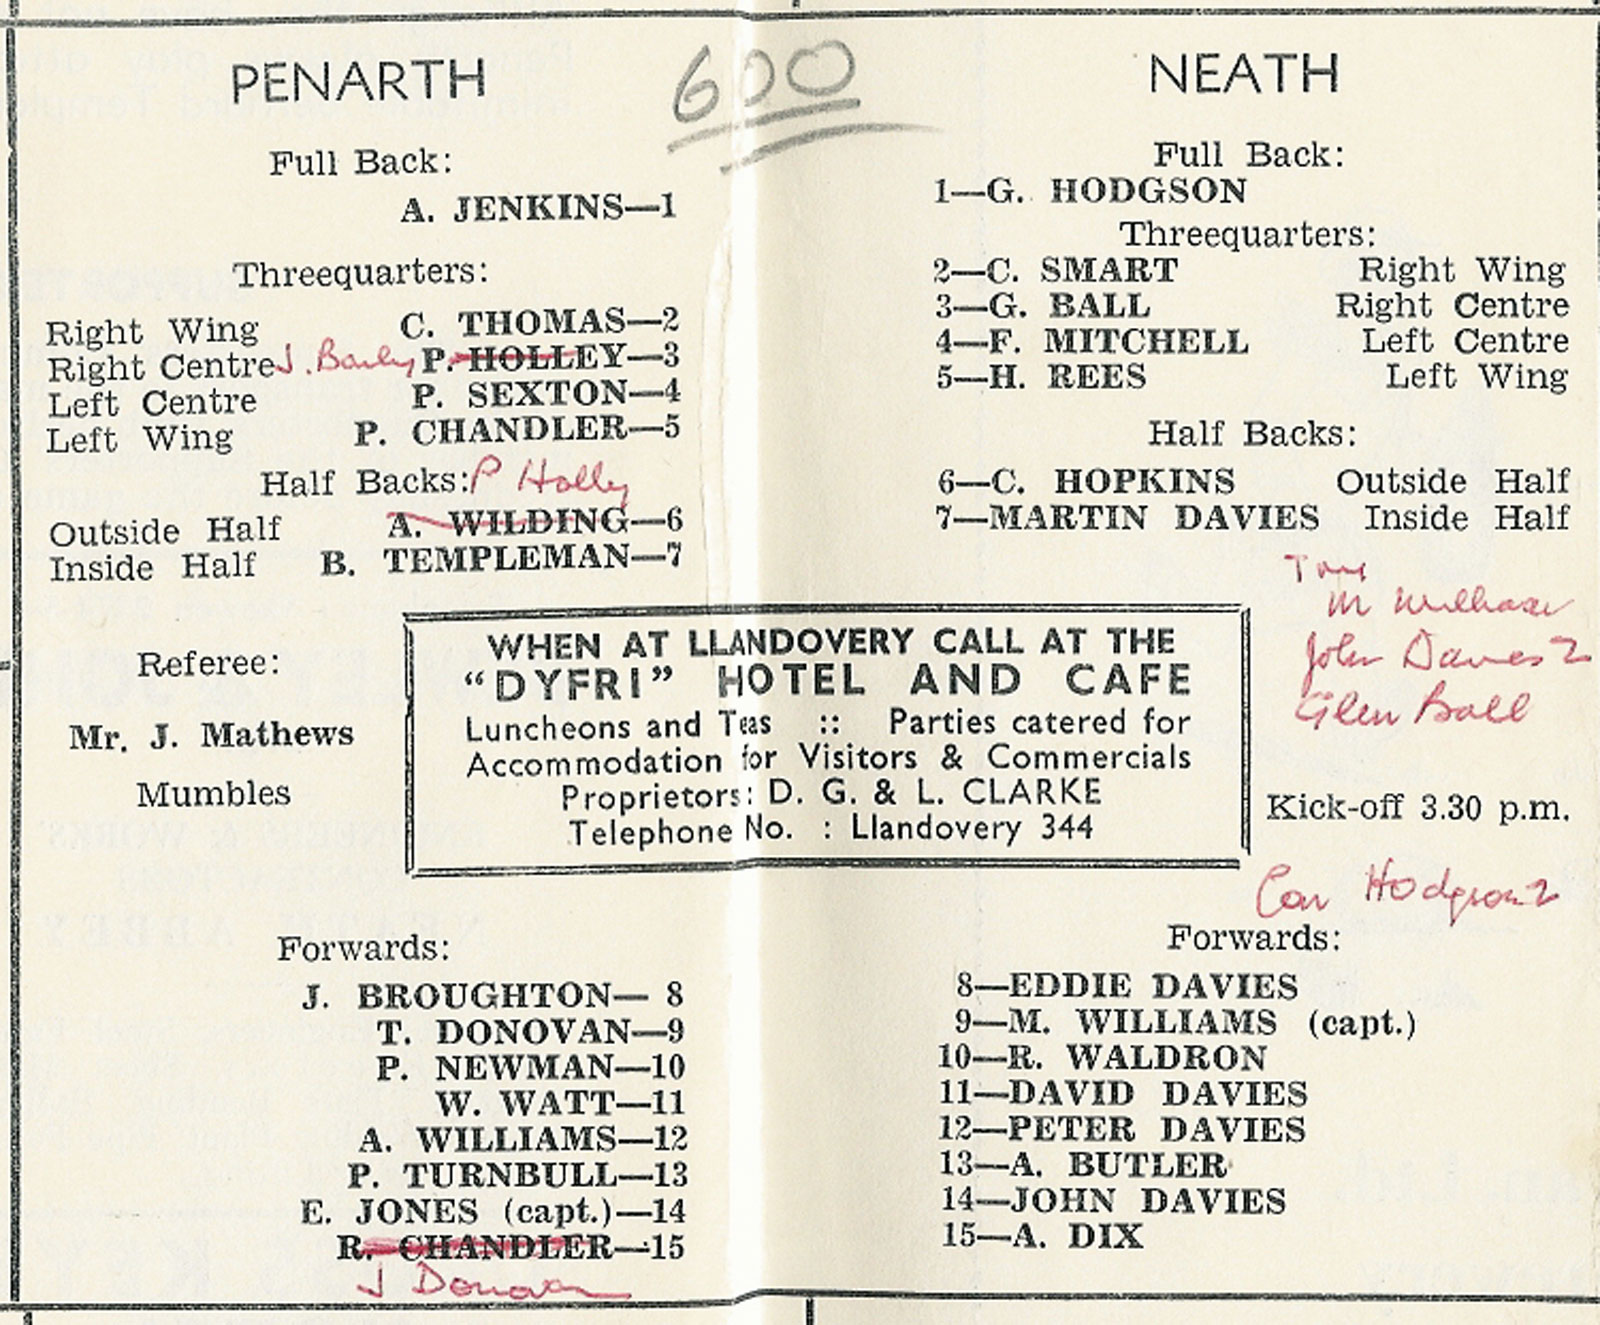 600
PENARTH
Full Back:
A. JENKINS—1
Threequarters:
Right Wing C. THOMAS—2
Right Centre J. P. HOLLEY—3
Left Centre P. SEXTON—4
Left Wing P. CHANDLER—5
Half Backs: P Holley
Outside Half A. WILDING—6
Inside Half B. TEMPLEMAN—7
Referee:
Mr. J. Mathews
Mumbles
Forwards:
J. BROUGHTON— 8
T. DONOVAN—9
P. NEWMAN—10
W. WATT—11
A. WILLIAMS—12
P. TURNBULL—13
E. JONES (capt.)—14
R. CHANDLER—15
J Donovan
WHEN AT LLANDOVERY CALL AT THE
"DYFRI" HOTEL AND CAFE
Luncheons and Teas :: Parties catered for
Accommodation for Visitors & Commercials
Proprietors: D. G. & L. CLARKE
Telephone No. : Llandovery 344
NEATH
Full Back:
1—G. HODGSON
Threequarters:
2—C. SMART Right Wing
3—G. BALL Right Centre
4—F. MITCHELL Left Centre
5—H. REES Left Wing
Half Backs:
6—C. HOPKINS Outside Half
7—MARTIN DAVIES Inside Half
M
John Davies 2
Glen Ball
Kick-off 3.30 p.m.
Con Hodgson 2
Forwards:
8—EDDIE DAVIES
9—M. WILLIAMS (capt.)
10—R. WALDRON
11—DAVID DAVIES
12—PETER DAVIES
13—A. BUTLER
14—JOHN DAVIES
15—A. DIX